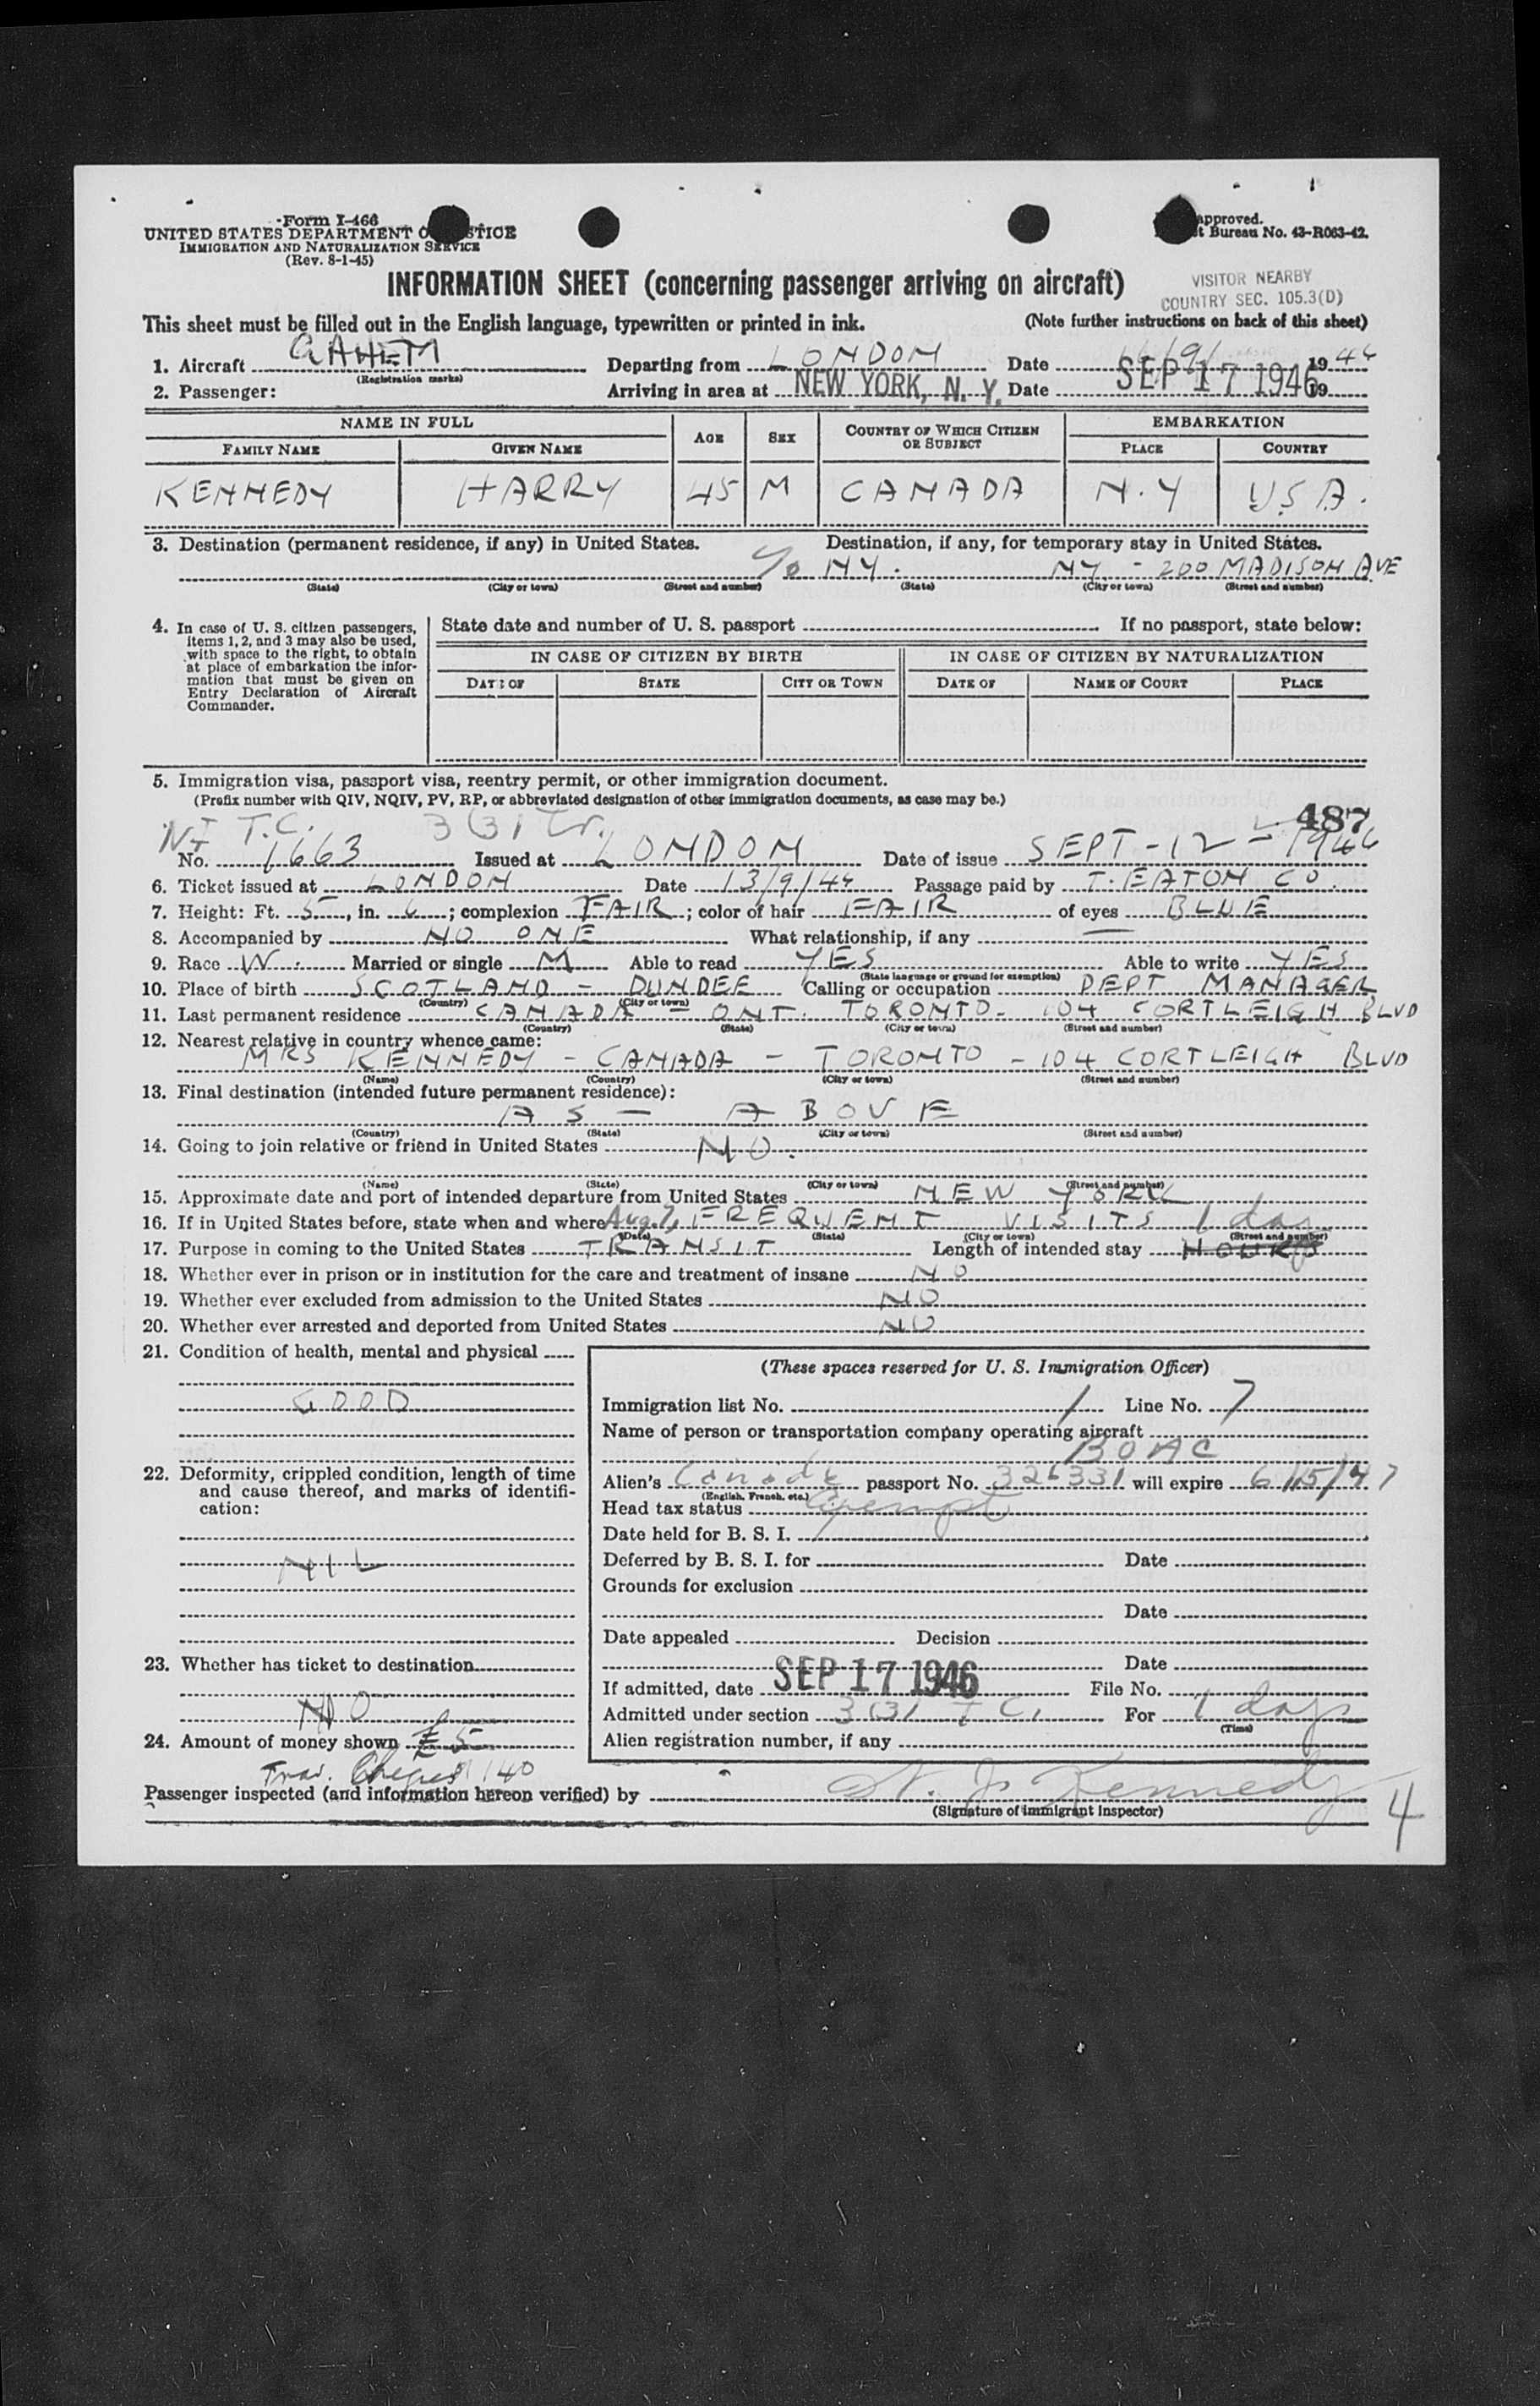 Form I-466
UNITED STATES DEPARTMENT OF JUSTICE
IMMIGRATION AND NATURALIZATION SERVICE
(Rev. 8-1-45)
approved.
Bureau No. 43-R063-42.
INFORMATION SHEET (concerning passenger arriving on aircraft)
VISITOR NEARBY
COUNTRY SEC. 105.3(D)
This sheet must be filled out in the English language, typewritten or printed in ink. (Note further instructions on back of this sheet)
1. Aircraft GAHEM Departing from LONDON Date 16/9/ 1946
(Registration marks)
2. Passenger: Arriving in area at NEW YORK, N. Y. Date SEP 17 1946 19
NAME IN FULL AGE SEX COUNTRY OF WHICH CITIZEN OR SUBJECT EMBARKATION
FAMILY NAME GIVEN NAME PLACE COUNTRY
KENNEDY HARRY 45 M CANADA N.Y U.S.A.
3. Destination (permanent residence, if any) in United States. Destination, if any, for temporary stay in United States.
c/o NY. NY - 200 MADISON AVE
(State) (City or town) (Street and number) (State) (City or town) (Street and number)
4. In case of U. S. citizen passengers, items 1, 2, and 3 may also be used, with space to the right, to obtain at place of embarkation the information that must be given on Entry Declaration of Aircraft Commander.
State date and number of U. S. passport If no passport, state below:
IN CASE OF CITIZEN BY BIRTH IN CASE OF CITIZEN BY NATURALIZATION
DATE OF STATE CITY OR TOWN DATE OF NAME OF COURT PLACE
5. Immigration visa, passport visa, reentry permit, or other immigration document.
(Prefix number with QIV, NQIV, PV, RP, or abbreviated designation of other immigration documents, as case may be.)
487
NI T.C. 3(3) Tr.
No. 1663 Issued at LONDON Date of issue SEPT-12-1946
6. Ticket issued at LONDON Date 13/9/46 Passage paid by T. EATON CO.
7. Height: Ft. 5, in. 6; complexion FAIR; color of hair FAIR of eyes BLUE
8. Accompanied by NO ONE What relationship, if any —
9. Race W. Married or single M Able to read YES Able to write YES
(State language or ground for exemption)
10. Place of birth SCOTLAND - DUNDEE Calling or occupation DEPT MANAGER
(Country) (City or town)
11. Last permanent residence CANADA - ONT. TORONTO - 104 CORTLEIGH BLVD
(Country) (State) (City or town) (Street and number)
12. Nearest relative in country whence came:
MRS KENNEDY - CANADA - TORONTO - 104 CORTLEIGH BLVD
(Name) (Country) (City or town) (Street and number)
13. Final destination (intended future permanent residence):
AS - ABOVE
(Country) (State) (City or town) (Street and number)
14. Going to join relative or friend in United States NO.
(Name) (State) (City or town) (Street and number)
15. Approximate date and port of intended departure from United States NEW YORK
16. If in United States before, state when and where Aug. 7, FREQUENT VISITS 1 day
(Date) (State) (City or town) (Street and number)
17. Purpose in coming to the United States TRANSIT Length of intended stay HOURS
18. Whether ever in prison or in institution for the care and treatment of insane NO
19. Whether ever excluded from admission to the United States NO
20. Whether ever arrested and deported from United States NO
21. Condition of health, mental and physical
GOOD
22. Deformity, crippled condition, length of time and cause thereof, and marks of identification:
NIL
23. Whether has ticket to destination
NO
24. Amount of money shown £5
Trav. Cheques 140
(These spaces reserved for U. S. Immigration Officer)
Immigration list No. 1 Line No. 7
Name of person or transportation company operating aircraft
BOAC
Alien's Canada passport No. 326331 will expire 6/15/47
(English, French, etc.)
Head tax status exempt
Date held for B. S. I.
Deferred by B. S. I. for Date
Grounds for exclusion
Date
Date appealed Decision
Date
If admitted, date SEP 17 1946 File No.
Admitted under section 3(3) T C. For 1 day
(Time)
Alien registration number, if any
Passenger inspected (and information hereon verified) by Kennedy
(Signature of immigrant inspector)
4